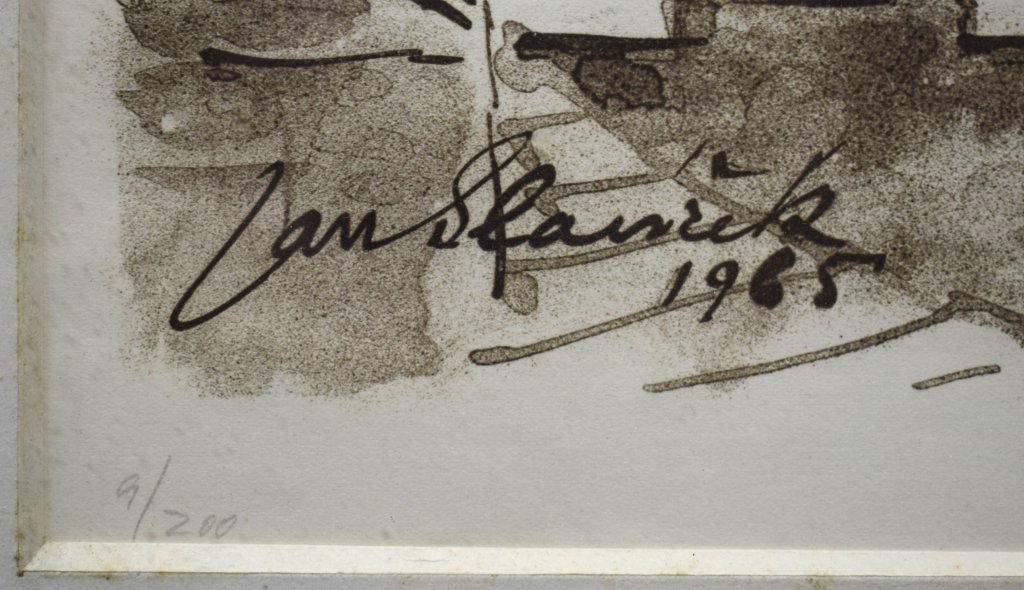 Jan Slavíček
1965
9/200